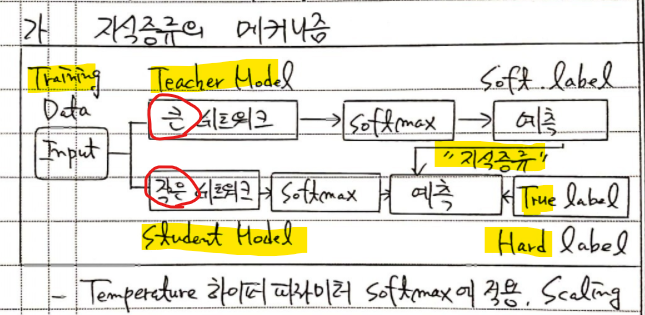 가 지식증류의 메커니즘
Training Teacher Model Soft label
Data
큰 네트워크 Softmax 예측
Input
"지식증류"
작은 네트워크 Softmax 예측 True label
Student Model Hard label
- Temperature 하이퍼 파라미터 Softmax에 적용. Scaling